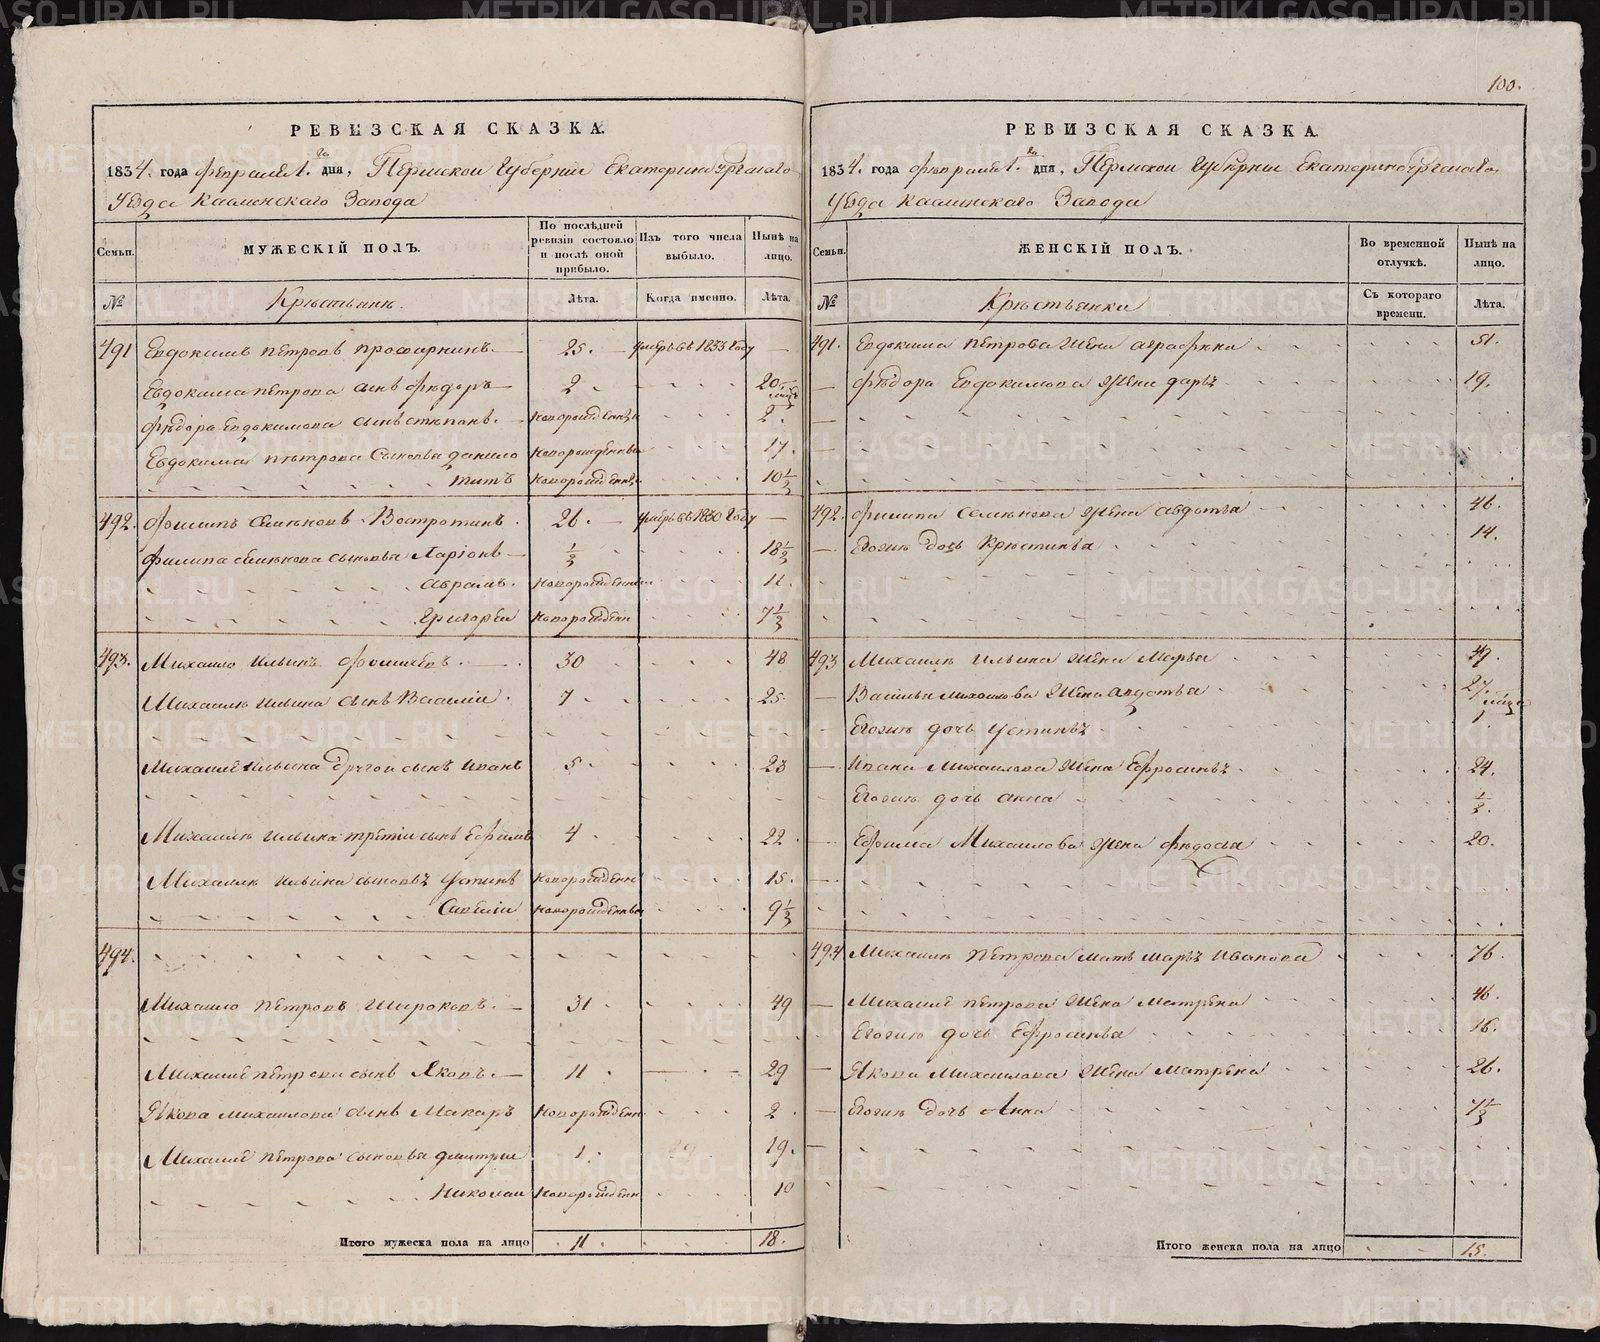 100.
РЕВИЗСКАЯ СКАЗКА.
1834. года февраля 1.го дня, Пермской Губернии Екатеринбургскаго
Уезда Каслинскаго Завода
Семьи.
МУЖЕСКІЙ ПОЛЪ.
По послѣдней ревизіи состояло и послѣ оной прибыло.
Изъ того числа выбыло.
Нынѣ на лицо.
№
Крестьяне.
Лѣта.
Когда именно.
Лѣта.
491 Евдокимъ Петровъ 25. 1833 году
Евдокима Петрова сынъ Федоръ 2 20
Федора Евдокимова сынъ Степанъ. новорожденъ 2.
Евдокима Петрова сыновья Данило новорожденны 17.
Титъ новорожденъ 10½
492. Филипъ Семеновъ Востротинъ. 26. 1830 году
Филипа Семенова сыновья Ларіонъ ½ 18½
Аврамъ. новорожденны 11.
Григорей новорожденн 7½
493. Михайло Ильинъ 30 48
Михайла Ильина сынъ Василій. 7 25
Михайла Ильина другой сынъ Иванъ 5. 23
Михайла Ильина третій сынъ Ефимъ 4 22
Михайла Ильина сыновья Устинъ новорожденн 15.
Савелій новорожденны 9½
494.
Михайло Петровъ Широковъ. 31 49
Михайла Петрова сынъ Яковъ. 11. 29
Якова Михайлова сынъ Макаръ новорожденн 2.
Михайла Петрова сыновья Дмитрей 1. 19.
Николай новорожденн 10
Итого мужеска пола на лицо 11. 18.
РЕВИЗСКАЯ СКАЗКА.
1834. года февраля 1.го дня, Пермской Губернии Екатеринбургскаго
Уезда Каслинскаго Завода
Семьи.
ЖЕНСКІЙ ПОЛЪ.
Во временной отлучкѣ.
Нынѣ на лицо.
№
Крестьянки
Съ котораго времени.
Лѣта.
491. Евдокима Петрова жена Аграфена 51.
Федора Евдокимова жена Дарья 19.
492. Филипа Семенова жена Авдотья 46.
Егожъ дочь Крестинья 14.
493 Михайла Ильина жена Марья 49.
Василья Михайлова жена Авдотья 27.
Егожъ дочь Устинья 1
Ивана Михайлова жена Ефросинья 24.
Егожъ дочь Анна ½.
Ефима Михайлова жена Федосья 20.
494 Михайла Петрова мать Марья Иванова 76.
Михайла Петрова жена Матрена 46.
Егожъ дочь Ефросинья 16.
Якова Михайлова жена Матрена 26.
Егожъ дочь Анна 7½
Итого женска пола на лицо 15.
METRIKI.GASO-URAL.RU